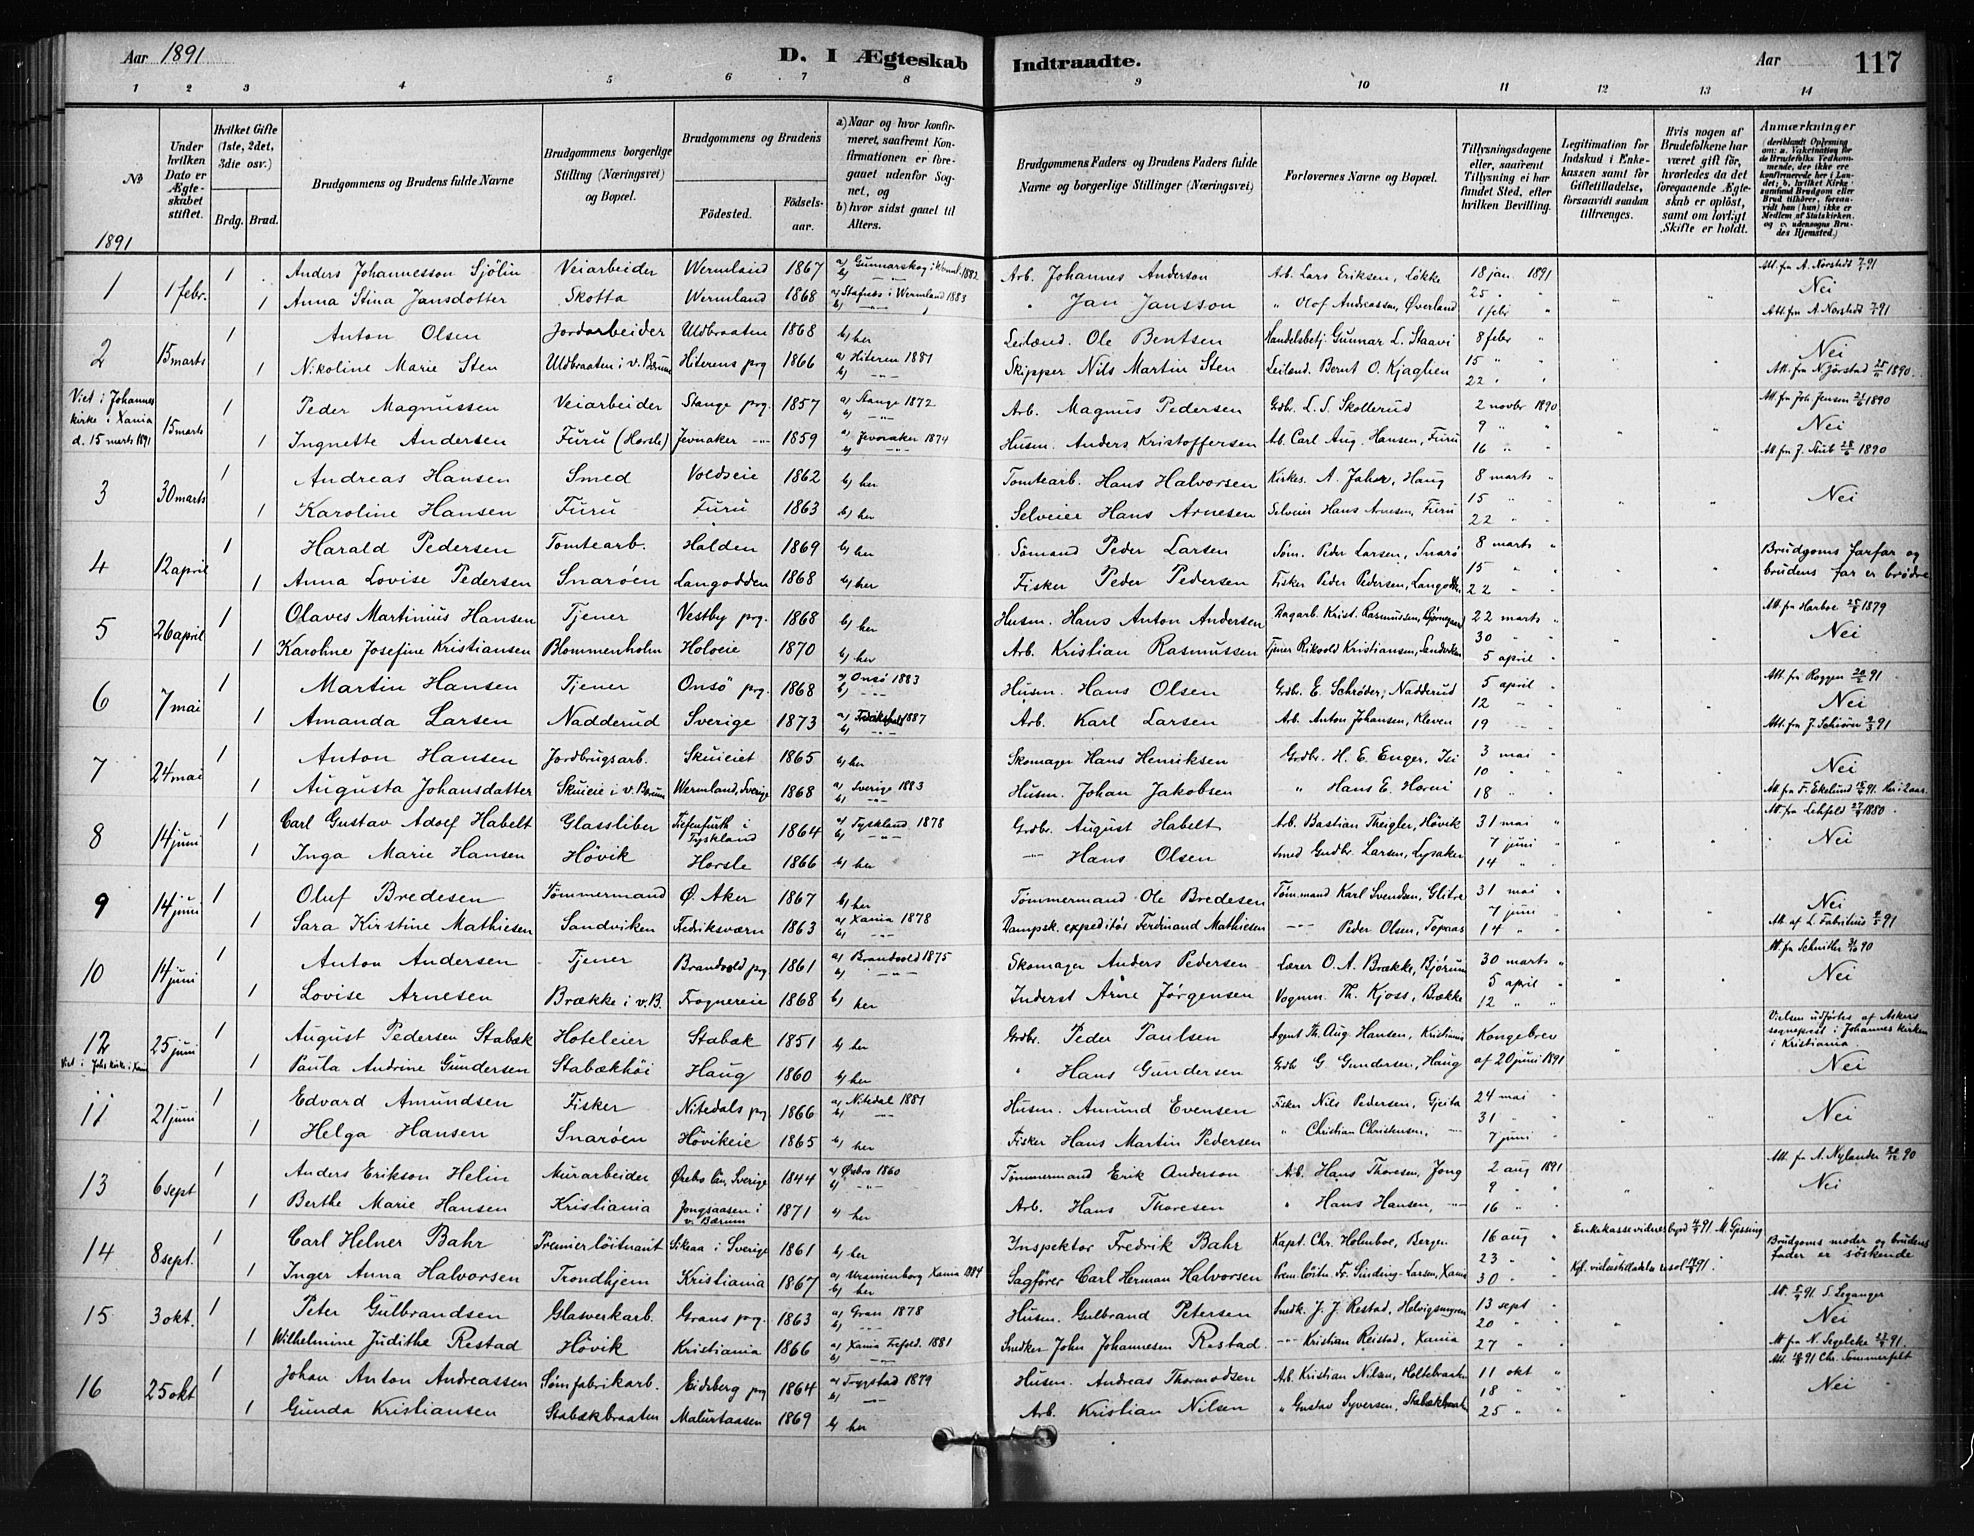 Aar 1891
D. I Ægteskab Indtraadte.
Aar
117
1 2 3 4 5 6 7 8 9 10 11 12 13 14
No
1891
Under hvilken Dato er Ægteskabet stiftet.
Hvilket Gifte (1ste, 2det, 3die osv.)
Brdg. Brud.
Brudgommens og Brudens fulde Navne
Brudgommens borgerlige Stilling (Næringsvei) og Bopæl.
Brudgommens og Brudens
Fødested.
Fødselsaar.
a) Naar og hvor konfirmeret, saafremt Konfirmationen er foregaaet udenfor Sognet, og
b) hvor sidst gaaet til Alters.
Brudgommens Faders og Brudens Faders fulde Navne og borgerlige Stillinger (Næringsvei)
Forlovernes Navne og Bopæl.
Tillysningsdagene eller, saafremt Tillysning ei har fundet Sted, efter hvilken Bevilling.
Legitimation for Indskud i Enkekassen samt for Giftetilladelse, forsaavidt saadan tiltrænges.
Hvis nogen af Brudefolkene har været gift før, hvorledes da det foregaaende Ægteskab er opløst, samt om lovligt Skifte er holdt.
Anmærkninger (deriblandt Oplysning om: a. Vakcination for de Brudefolks Vedkommende, der ikke ere konfirmerede her i Landet; b. hvilket Kirkesamfund Brudgom eller Brud tilhører, forsaavidt han (hun) ikke er Medlem af Statskirken, og c. udensogns Brudes Hjemsted.)
1 1 febr. 1 Anders Johannesson Sjölin Veiarbeider Wermland 1867 a) Gunnarskog i Werml. 1882 b) Arb. Johannes Anderson Arb. Lars Eriksen, Løkke 18 jan 1891 Att. fra A. Norstedt 7/1 91
1 Anna Stina Jansdotter Skotta Wermland 1868 a) Stafnäs i Wermland 1883 b) " Jan Jansson " Olof Andreassen, Øverland 25 " 1 febr " Nei Att. fra A. Norstedt 7/1 91
2 15 marts 1 Anton Olsen Jordarbeider Uldbraaten 1868 b) her Leilænd. Ole Bentsen Handelsbetj. Gunnar L. Staavi 8 febr
1 Nikoline Marie Sten Uldbraaten i v. Bærum Hiterens prg 1866 a) Hiteren 1881 b) Skipper Nils Martin Sten Leilænd. Bernt O. Kjaglien 15 " 22 " Nei Att. fra N. Jørstad 25/11 1890.
Viet i Johannes kirke i Xania d. 15 marts 1891
15 marts 1 Peder Magnussen Veiarbeider Stange prg. 1857 a) Stange 1872 b) Arb. Magnus Pedersen Grdbr. L. S. Skollerud 2 novbr 1890 Att. fra Joh. Jensen 21/6 1890
1 Ingnette Andersen Furu (Horsle) Jevnaker 1859 a) Jevnaker 1874 b) Husm. Anders Kristoffersen Arb. Carl Aug. Hansen, Furu 9 " 16 " Nei Att. fra J. Stub 28/6 1890
3 30 marts 1 Andreas Hansen Smed Voldseie 1862 b) her Tomtearb. Hans Halvorsen Kirkes. A. Jaher, Haug 8 marts
1 Karoline Hansen Furu Furu 1863 b) her Selveier Hans Arnesen Selveier Hans Arnesen, Furu 15 " 22 " Nei
4 12 april 1 Harald Pedersen Tomtearb. Halden 1869 b) her Sømand Peder Larsen Søm. Peder Larsen, Snarø 8 marts Brudgoms farfar og
1 Anna Lovise Pedersen Snarøen Langodden 1868 b) her Fisker Peder Pedersen Fisker Peder Pedersen, Langodd. 15 " 22 " brudens far er brødre
5 26 april 1 Olaves Martinius Hansen Tjener Vestby prg. 1868 b) her Husm. Hans Anton Andersen Dagarb. Krist. Rasmussen, 22 marts Att. fra Harboe 25/5 1879
1 Karoline Josefine Kristiansen Blommenholm Holveie 1870 b) her Arb. Kristian Rasmussen Tjener Rikvold Kristiansen, Sandviken 30 " 5 april Nei
6 7 mai 1 Martin Hansen Tjener Onsö prg. 1868 a) Onsö 1883 b) Husm. Hans Olsen Grdbr. E. Schrøder, Nadderud 5 april Att. fra Roggen 20/2 91
1 Amanda Larsen Nadderud Sverige 1873 a) 1887 b) Arb. Karl Larsen Arb. Anton Johansen, Kleven 12 " 19 " Nei Att. fra J. Schiørn 2/3 91
7 24 mai 1 Anton Hansen Jordbrugsarb. Skuieiet 1865 b) her Skomager Hans Henriksen Grdbr. H. E. Enger, Isi 3 mai
1 Augusta Johansdatter Skuieie i v. Bærum Wermland, Sverige 1868 a) Sverige 1883 b) Husm. Johan Jakobsen " Hans E. Horni 10 " 18 " Nei Att. fra F. Ekelund 15/4 91. Her i 2 aar.
8 14 juni 1 Carl Gustav Adolf Habelt Glassliber Tiefenfurth i Tyskland 1864 a) Tyskland 1878 b) Grdbr. August Habelt Arb. Bastian Theigler, Høvik 31 mai Att. fra Lehfeld 27/7 1880
1 Inga Marie Hansen Høvik Horsle 1866 b) her Hans Olsen Smed Gudbr. Larsen, Lysaker 7 juni 14 " Nei
9 14 juni 1 Oluf Bredesen Tømmermand Ø. Aker 1867 b) her Tømmermand Ole Bredesen Tømmand Karl Svendsen, Glitre 31 mai Nei
1 Sara Kirstine Mathiesen Sandviken Fredriksværn 1863 a) Xania 1878 b) Dampsk. expeditör Ferdinand Mathiesen Peder Olsen, Topaas 7 juni 14 " Att. af L. Fabritius 2/5 91
10 14 juni 1 Anton Andersen Tjener Brandvold prg 1861 a) Brandvold 1875 b) Skomager Anders Pedersen Lærer O. A. Brække, Bjørum 30 marts Att. fra Schnitler 3/10 90
1 Lovise Arnesen Brække i v. B. Frognereie 1868 b) her Inderst Arne Jørgensen Vognm. Th. Kjoss, Brække 5 april 12 " Nei
12 Viet i Johs kirke i Xania 25 juni 1 August Pedersen Stabæk Hoteleier Stabæk 1851 b) her Grdbr. Peder Paulsen Agent Th. Aug Hansen, Kristiania Kongebrev Vielsen udførtes af Askers sogneprest i Johannes kirken i Kristiania.
1 Paula Andrine Gundersen Stabækhöi Haug 1860 b) her " Hans Gundersen Grdbr G Gundersen, Haug af 20 juni 1891 Nei
11 21 juni 1 Edvard Amundsen Fisker Nitedals prg 1866 a) Nitedal 1881 b) Husm. Amund Evensen Fisker Nils Pedersen, Gjeita 24 mai
1 Helga Hansen Snarøen Høvikeie 1865 b) her Fisker Hans Martin Pedersen " Christian Christensen, 31 " 7 juni Nei
13 6 sept 1 Anders Erikson Helin Murarbeider Ørebro län, Sverige 1844 a) Ørebro 1860 b) Tømmermand Erik Anderson Arb. Hans Thoresen, Jong 2 aug 1891 Att. fra A. Nylander 20/12 90
1 Berthe Marie Hansen Kristiania Jongsaasen i v. Bærum 1871 b) her Arb. Hans Thoresen " Hans Hansen, 9 " 16 " Nei
14 8 sept. 1 Carl Helner Bahr Premierlöitnant Sikeaa i Sverige 1861 b) her Inspektor Fredrik Bahr Kapt. Chr. Holmboe, Bergen 16 aug Enkekassevidnesbyrd 4/9 91 M. Gjessing Brudgoms moder og brudens
1 Inger Anna Halvorsen Trondhjem Kristiania 1867 a) Uranienborg Xania 1884 b) her Sagfører Carl Herman Halvorsen Prem. löitn. Fr. Sinding-Larsen, Xania 23 " 30 " Kgl. vielsestilladelse resol. 91. fader er søskende
15 3 okt. 1 Peter Gulbrandsen Glasverkarb. Grans prg. 1863 a) Gran 1878 b) Husm. Gulbrand Petersen Snedk. J. J. Restad, Helvigsmyren 13 sept Att. 5/9 91 S. Leganger
1 Wilhelmine Judithe Restad Høvik Kristiania 1866 a) Xania Trefold. 1881 b) Snedker John Johannesen Restad. Kristian Reistad, Xania 20 " 27 " Nei Att fra N. Segelcke 23/9 91.
16 25 okt 1 Johan Anton Andreassen Sømfabrikarb. Eidsberg prg 1864 a) Trygstad 1879 b) Husm. Andreas Thormodsen Arb. Kristian Nilsen, Holtebraaten 11 okt Att. 91 Chr. Sommerfelt
1 Gunda Kristiansen Stabækbraaten Malurtaasen 1869 b) her Arb. Kristian Nilsen " Gustav Syversen, Stabækbraaten 18 " 25 " Nei